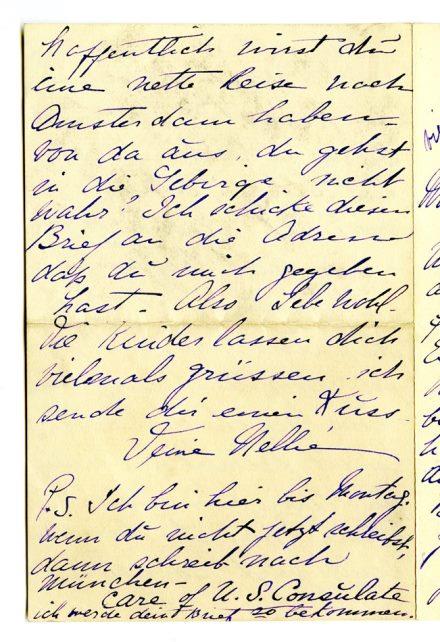 hoffentlich wirst du
eine nette Reise nach
Amsterdam haben–
von da aus, du gehst
in die Gebirge, nicht
wahr? Ich schicke diesen
Brief an die Adresse
daß du mich gegeben
hast – Also Lebe wohl –
Die Kinder lassen dich
vielmals grüssen, ich
sende dir einen Kuss –
Deine Nellie
P.S. Ich bin hier bis Montag.
wenn du nicht jetzt schreibst,
dann schreib nach
München –
care of U.S. Consulate
ich werde deine Brief so bekommen.